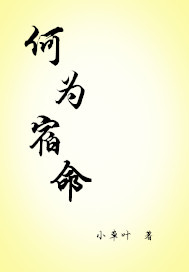 何为宿命
小草叶 著